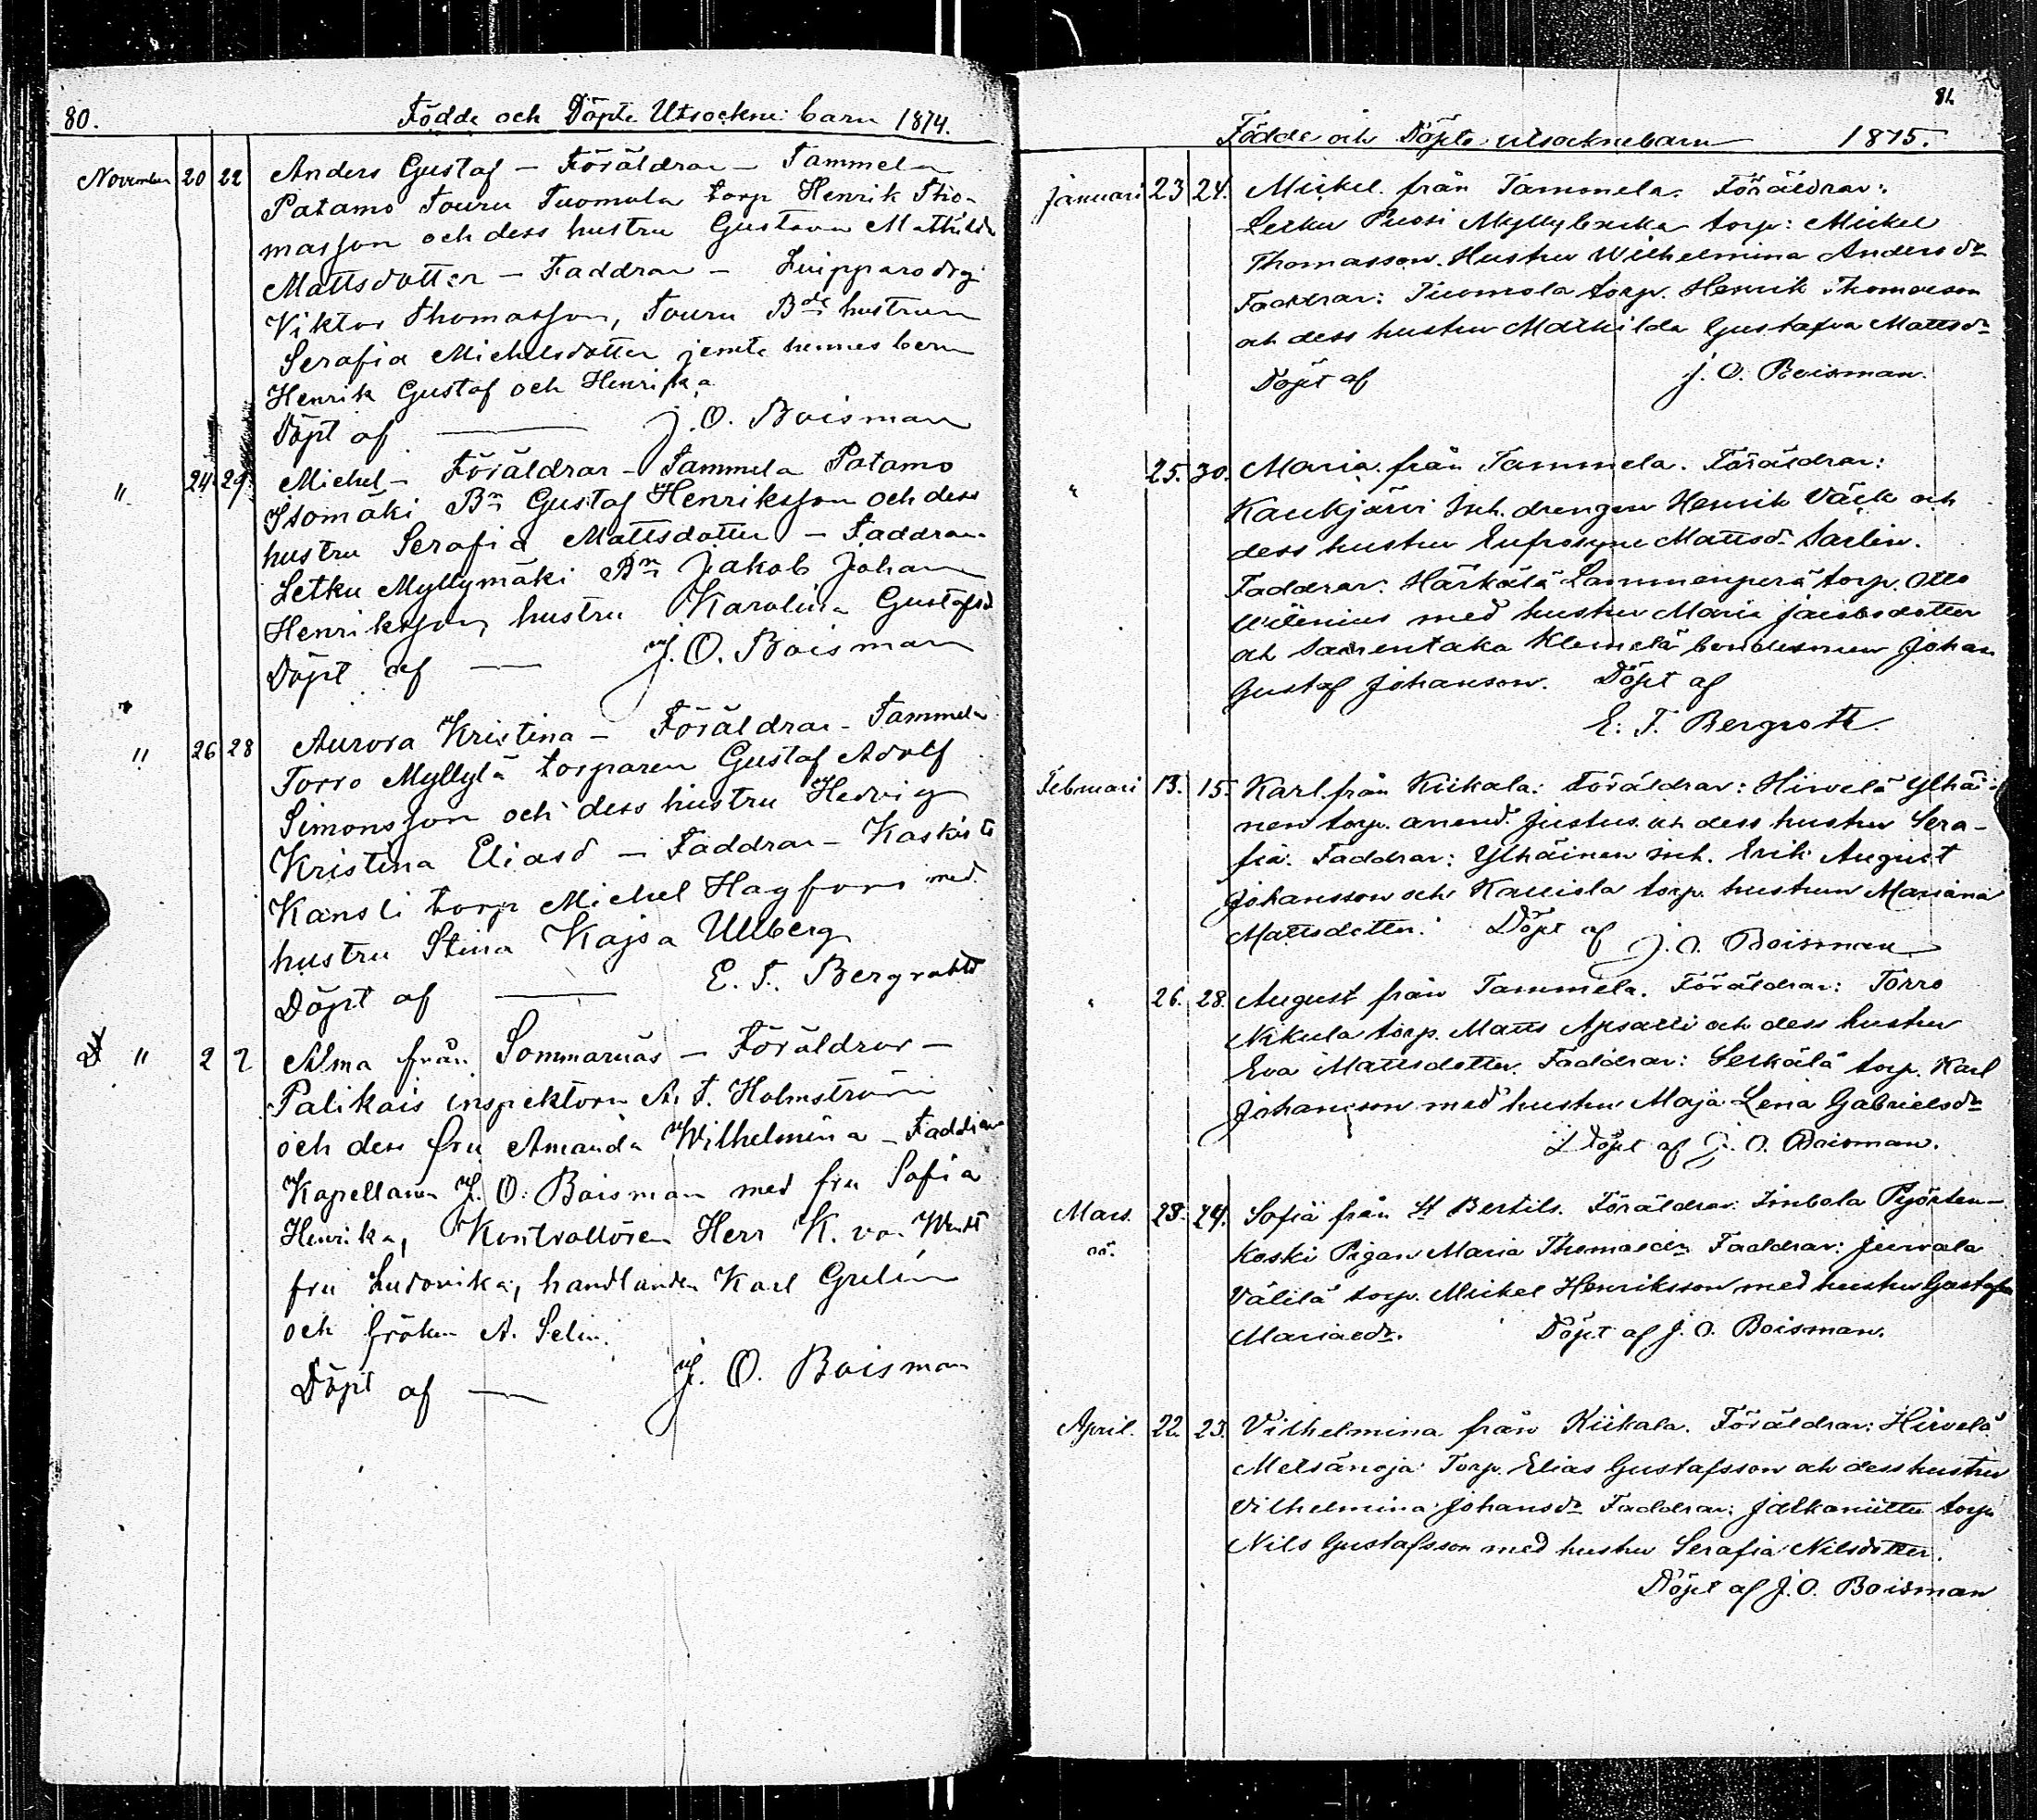 80. Födde och Döpte Utsockne barn 1874.
November 20 22 Anders Gustaf – Föräldrar – Tammela
Patamo Touru Tuomola torp Henrik Tho-
masson och dess hustru Gustava Mathilda
Mattsdotter – Faddrar –
Viktor Thomasson, Touru Bde hustrun
Serafia Michelsdotter jemte hennes
Henrik Gustaf och Henrika
Döpt af — J. O. Boisman
" 24 29 Michel – Föräldrar – Tammela Patamo
Isomäki Bn Gustaf Henriksson och dess
hustru Serafia Mattsdotter – Faddrar
Letku Myllymäki Bn Jakob Johan
Henriksson, hustru Karolina Gustafsd
Döpt af — J. O. Boisman
" 26 28 Aurora Kristina – Föräldrar – Tammela
Torro Myllylä torparen Gustaf Adolf
Simonsson och dess hustru Hedvig
Kristina Eliasd – Faddrar –
Kansli torp Michel Hagfors med
hustru Stina Kajsa Ullberg
Döpt af — E. F. Bergroth
" 2 2 Alma från Sommarnäs – Föräldrar –
Palikais inspektorn A. F. Holmström
och dess fru Amanda Wilhelmina – Faddrar
Kapellanen J. O. Boisman med fru Sofia
Henrika, Kontrollören Herr K. von Wendt
fru Ludovika, handlanden Karl Grelin
och fröken A. Selin.
Döpt af — J. O. Boisman
81.
Födde och Döpte utsocknebarn 1875.
Januari 23 24. Mickel från Tammela. Föräldrar:
Letku Pussi torp: Mickel
Thomasson. Hustru Wilhelmina Andersdr
Faddrar: Tuomola torp. Henrik Thomasson
och dess hustru Mathilda Gustafva Mattsdr
Döpt af J. O. Boisman.
" 25. 30. Maria från Tammela. Föräldrar:
Kaukjärvi Inh. drengen Henrik Väck och
dess hustru Eufrosyne Mattsd. Sarlin.
Faddrar: Härkälä Lammenperä torp. Otto
med hustru Maria Jacobsdotter
och Saarentaka Klemelä bondesonen Johan
Gustaf Johanson. Döpt af
E. F. Bergroth.
Februari 13. 15. Karl från Kiikala: Föräldrar: Hirvelä Ylhäi-
nen torp. Justus och dess hustru Sera-
fia. Faddrar: Ylhäinen inh. Erik August
Johansson och torp. hustrun Mariana
Mattsdotter. Döpt af J. O. Boisman
" 26. 28. August från Tammela. Föräldrar: Torro
Nikula torp. Matts Apsalli och dess hustru
Eva Mattsdotter. Faddrar: torp. Karl
Johansson med hustru Maja Lena Gabrielsdr
Döpt af J. O. Boisman.
Mars 23. 24. Sofia från St Bertils. Föräldrar:
oä. Koski Pigan Maria Thomasdr. Faddrar: Juvala
Välilä torp. Mickel Henriksson med hustru Gustafva
Döpt af J. O. Boisman.
April. 22. 23. Vilhelmina från Kiikala. Föräldrar: Hirvelä
Metsänoja Torp. Elias Gustafsson och dess hustru
Vilhelmina Johansdr Faddrar: torp.
Nils Gustafsson med hustru Serafia Nilsdotter.
Döpt af J. O. Boisman